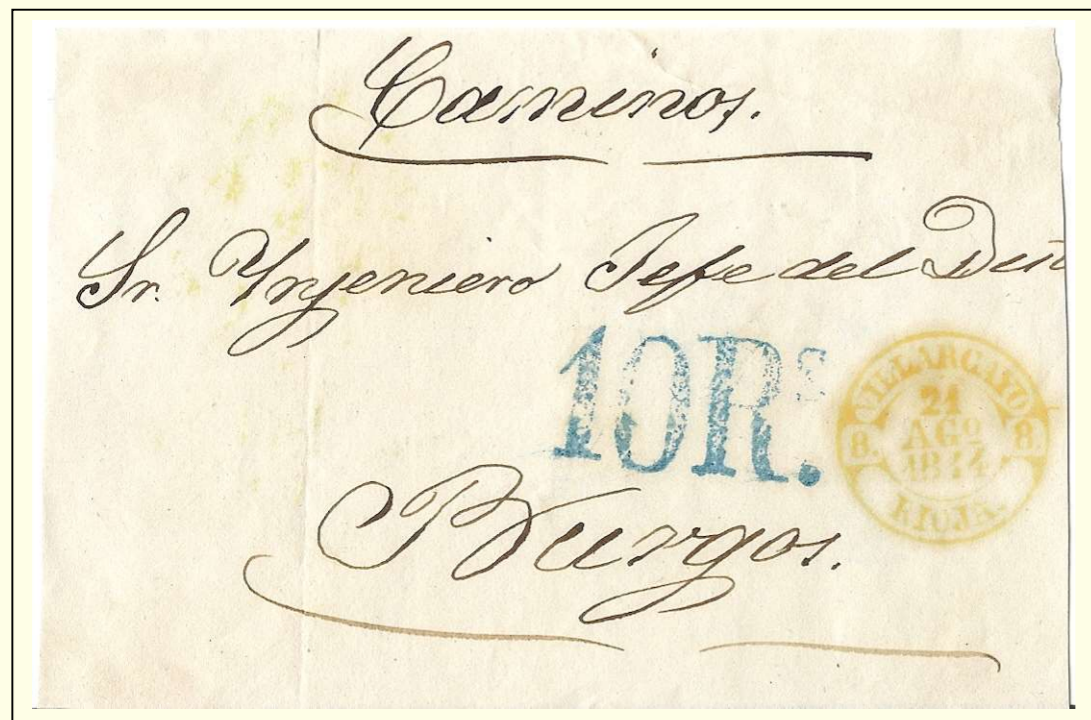 Caminos.
Sr. Yngeniero Jefe del
10Rs.
VILLARCAYO
21
AGO
1844
8. 8.
RIOJA.
Burgos.